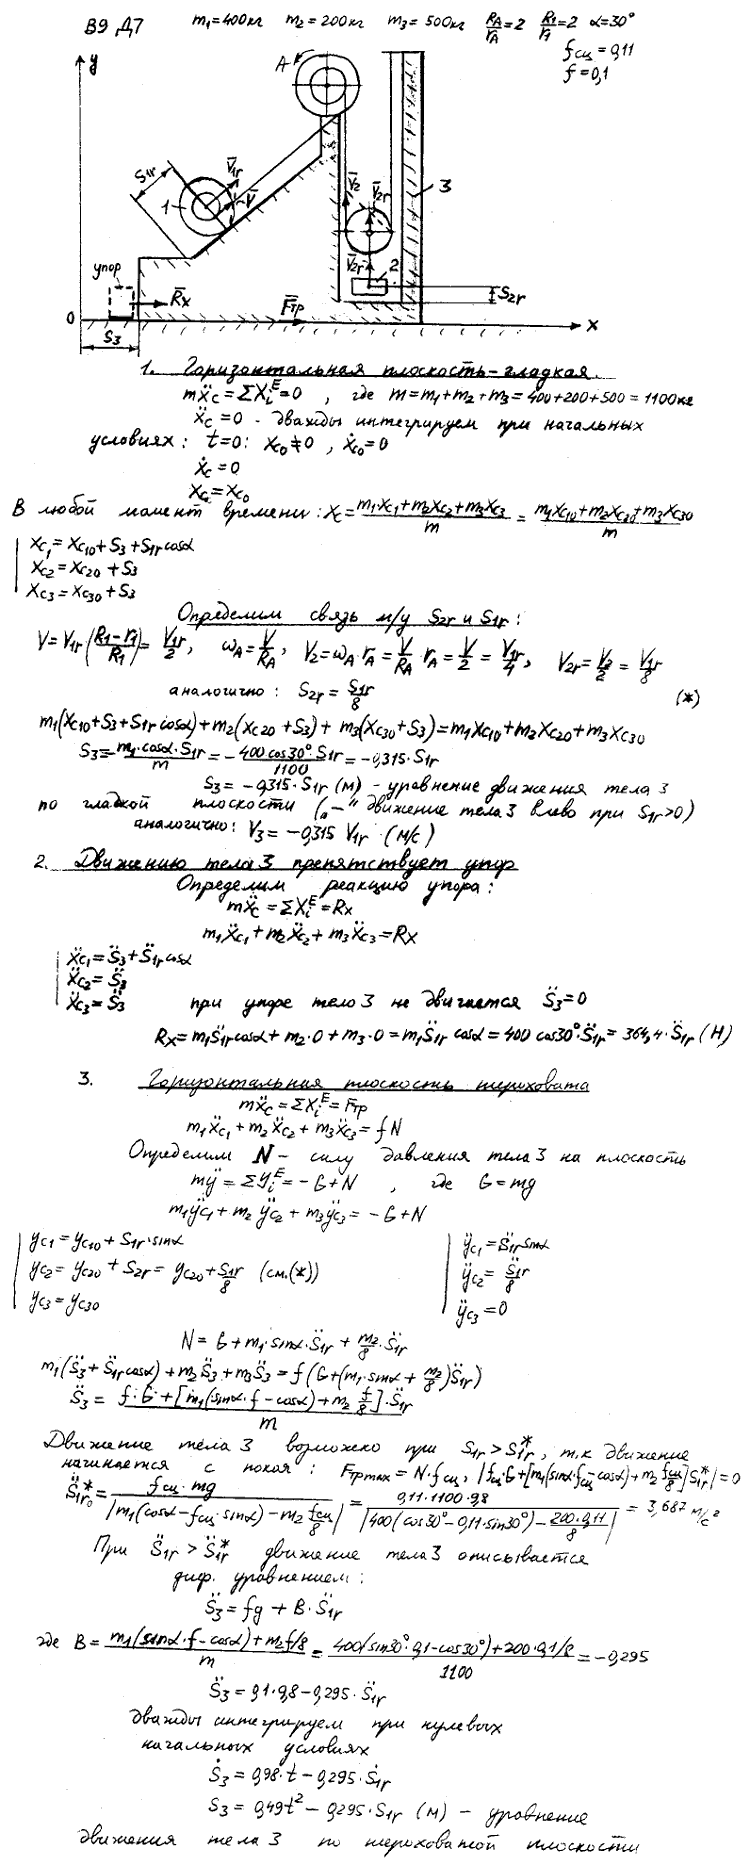 В9 Д7 m₁=400кг m₂=200кг m₃=500кг R_A/r_A=2 R₁/r₁=2 α=30°
f_сц=0,11
f=0,1
y
A
S₁r
V̄₁r
V̄
1
V̄₂
V̄₂r
3
упор
R̄x
V̄₂r
2
S₂r
0
F̄тр
x
S₃
1. Горизонтальная плоскость - гладкая.
mẍc = ΣXᵢᴱ = 0 , где m = m₁+m₂+m₃ = 400+200+500 = 1100кг
ẍc = 0 - дважды интегрируем при начальных
условиях: t=0: xc₀ ≠ 0 , ẋc₀ = 0
ẋc = 0
xc = xc₀
В любой момент времени: xc = (m₁xc₁+m₂xc₂+m₃xc₃)/m = (m₁xc₁₀+m₂xc₂₀+m₃xc₃₀)/m
xc₁ = xc₁₀ + S₃ + S₁r cosα
xc₂ = xc₂₀ + S₃
xc₃ = xc₃₀ + S₃
Определим связь м/у S₂r и S₁r:
V = V₁r((R₁-r₁)/R₁) = V₁r/2, ω_A = V/R_A, V₂ = ω_A·r_A = V/R_A·r_A = V/2 = V₁r/4, V₂r = V₂/2 = V₁r/8
аналогично: S₂r = S₁r/8 (*)
m₁(xc₁₀+S₃+S₁r cosα) + m₂(xc₂₀+S₃) + m₃(xc₃₀+S₃) = m₁xc₁₀+m₂xc₂₀+m₃xc₃₀
S₃ = -m₁·cosα·S₁r/m = -400 cos30°·S₁r/1100 = -0,315·S₁r
S₃ = -0,315·S₁r (м) - уравнение движения тела 3
по гладкой плоскости („-" движение тела 3 влево при S₁r>0)
аналогично: V₃ = -0,315 V₁r (м/с)
2. Движению тела 3 препятствует упор
Определим реакцию упора:
mẍc = ΣXᵢᴱ = Rx
m₁ẍc₁ + m₂ẍc₂ + m₃ẍc₃ = Rx
ẍc₁ = S̈₃ + S̈₁r cosα
ẍc₂ = S̈₃
ẍc₃ = S̈₃ при упоре тело 3 не двигается S̈₃=0
Rx = m₁S̈₁r cosα + m₂·0 + m₃·0 = m₁S̈₁r cosα = 400 cos30°·S̈₁r = 364,4·S̈₁r (Н)
3. Горизонтальная плоскость шероховата
mẍc = ΣXᵢᴱ = Fтр
m₁ẍc₁ + m₂ẍc₂ + m₃ẍc₃ = fN
Определим N - силу давления тела 3 на плоскость
mÿ = ΣYᵢᴱ = -G+N , где G = mg
m₁ÿc₁ + m₂ÿc₂ + m₃ÿc₃ = -G+N
yc₁ = yc₁₀ + S₁r·sinα ÿc₁ = S̈₁r sinα
yc₂ = yc₂₀ + S₂r = yc₂₀ + S₁r/8 (см.(*)) ÿc₂ = S̈₁r/8
yc₃ = yc₃₀ ÿc₃ = 0
N = G + m₁·sinα·S̈₁r + m₂/8·S̈₁r
m₁(S̈₃ + S̈₁r cosα) + m₂S̈₃ + m₃S̈₃ = f(G + (m₁·sinα + m₂/8)S̈₁r)
S̈₃ = (f·G + [m₁(sinα·f - cosα) + m₂ f/8]·S̈₁r)/m
Движение тела 3 возможно при S̈₁r > S̈₁r*, т.к движение
начинается с покоя: Fтр max = N·f_сц, |f_сц·G + [m₁(sinα·f_сц - cosα) + m₂ f_сц/8]S̈₁r*| = 0
S̈₁r₀* = f_сц·mg/|m₁(cosα - f_сц·sinα) - m₂ f_сц/8| = 0,11·1100·9,8/|400(cos30° - 0,11·sin30°) - 200·0,11/8| = 3,687 м/с²
При S̈₁r > S̈₁r* движение тела 3 описывается
диф. уравнением:
S̈₃ = fg + B·S̈₁r
где B = (m₁(sinα·f - cosα) + m₂f/8)/m = (400(sin30°·0,1 - cos30°) + 200·0,1/8)/1100 = -0,295
S̈₃ = 0,1·9,8 - 0,295·S̈₁r
дважды интегрируем при нулевых
начальных условиях
Ṡ₃ = 0,98·t - 0,295·Ṡ₁r
S₃ = 0,49t² - 0,295·S₁r (м) - уравнение
движения тела 3 по шероховатой плоскости